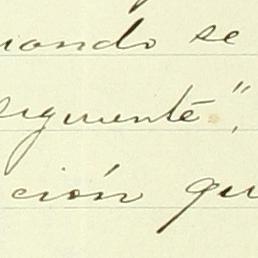 uando se
siguiente",
ción qu